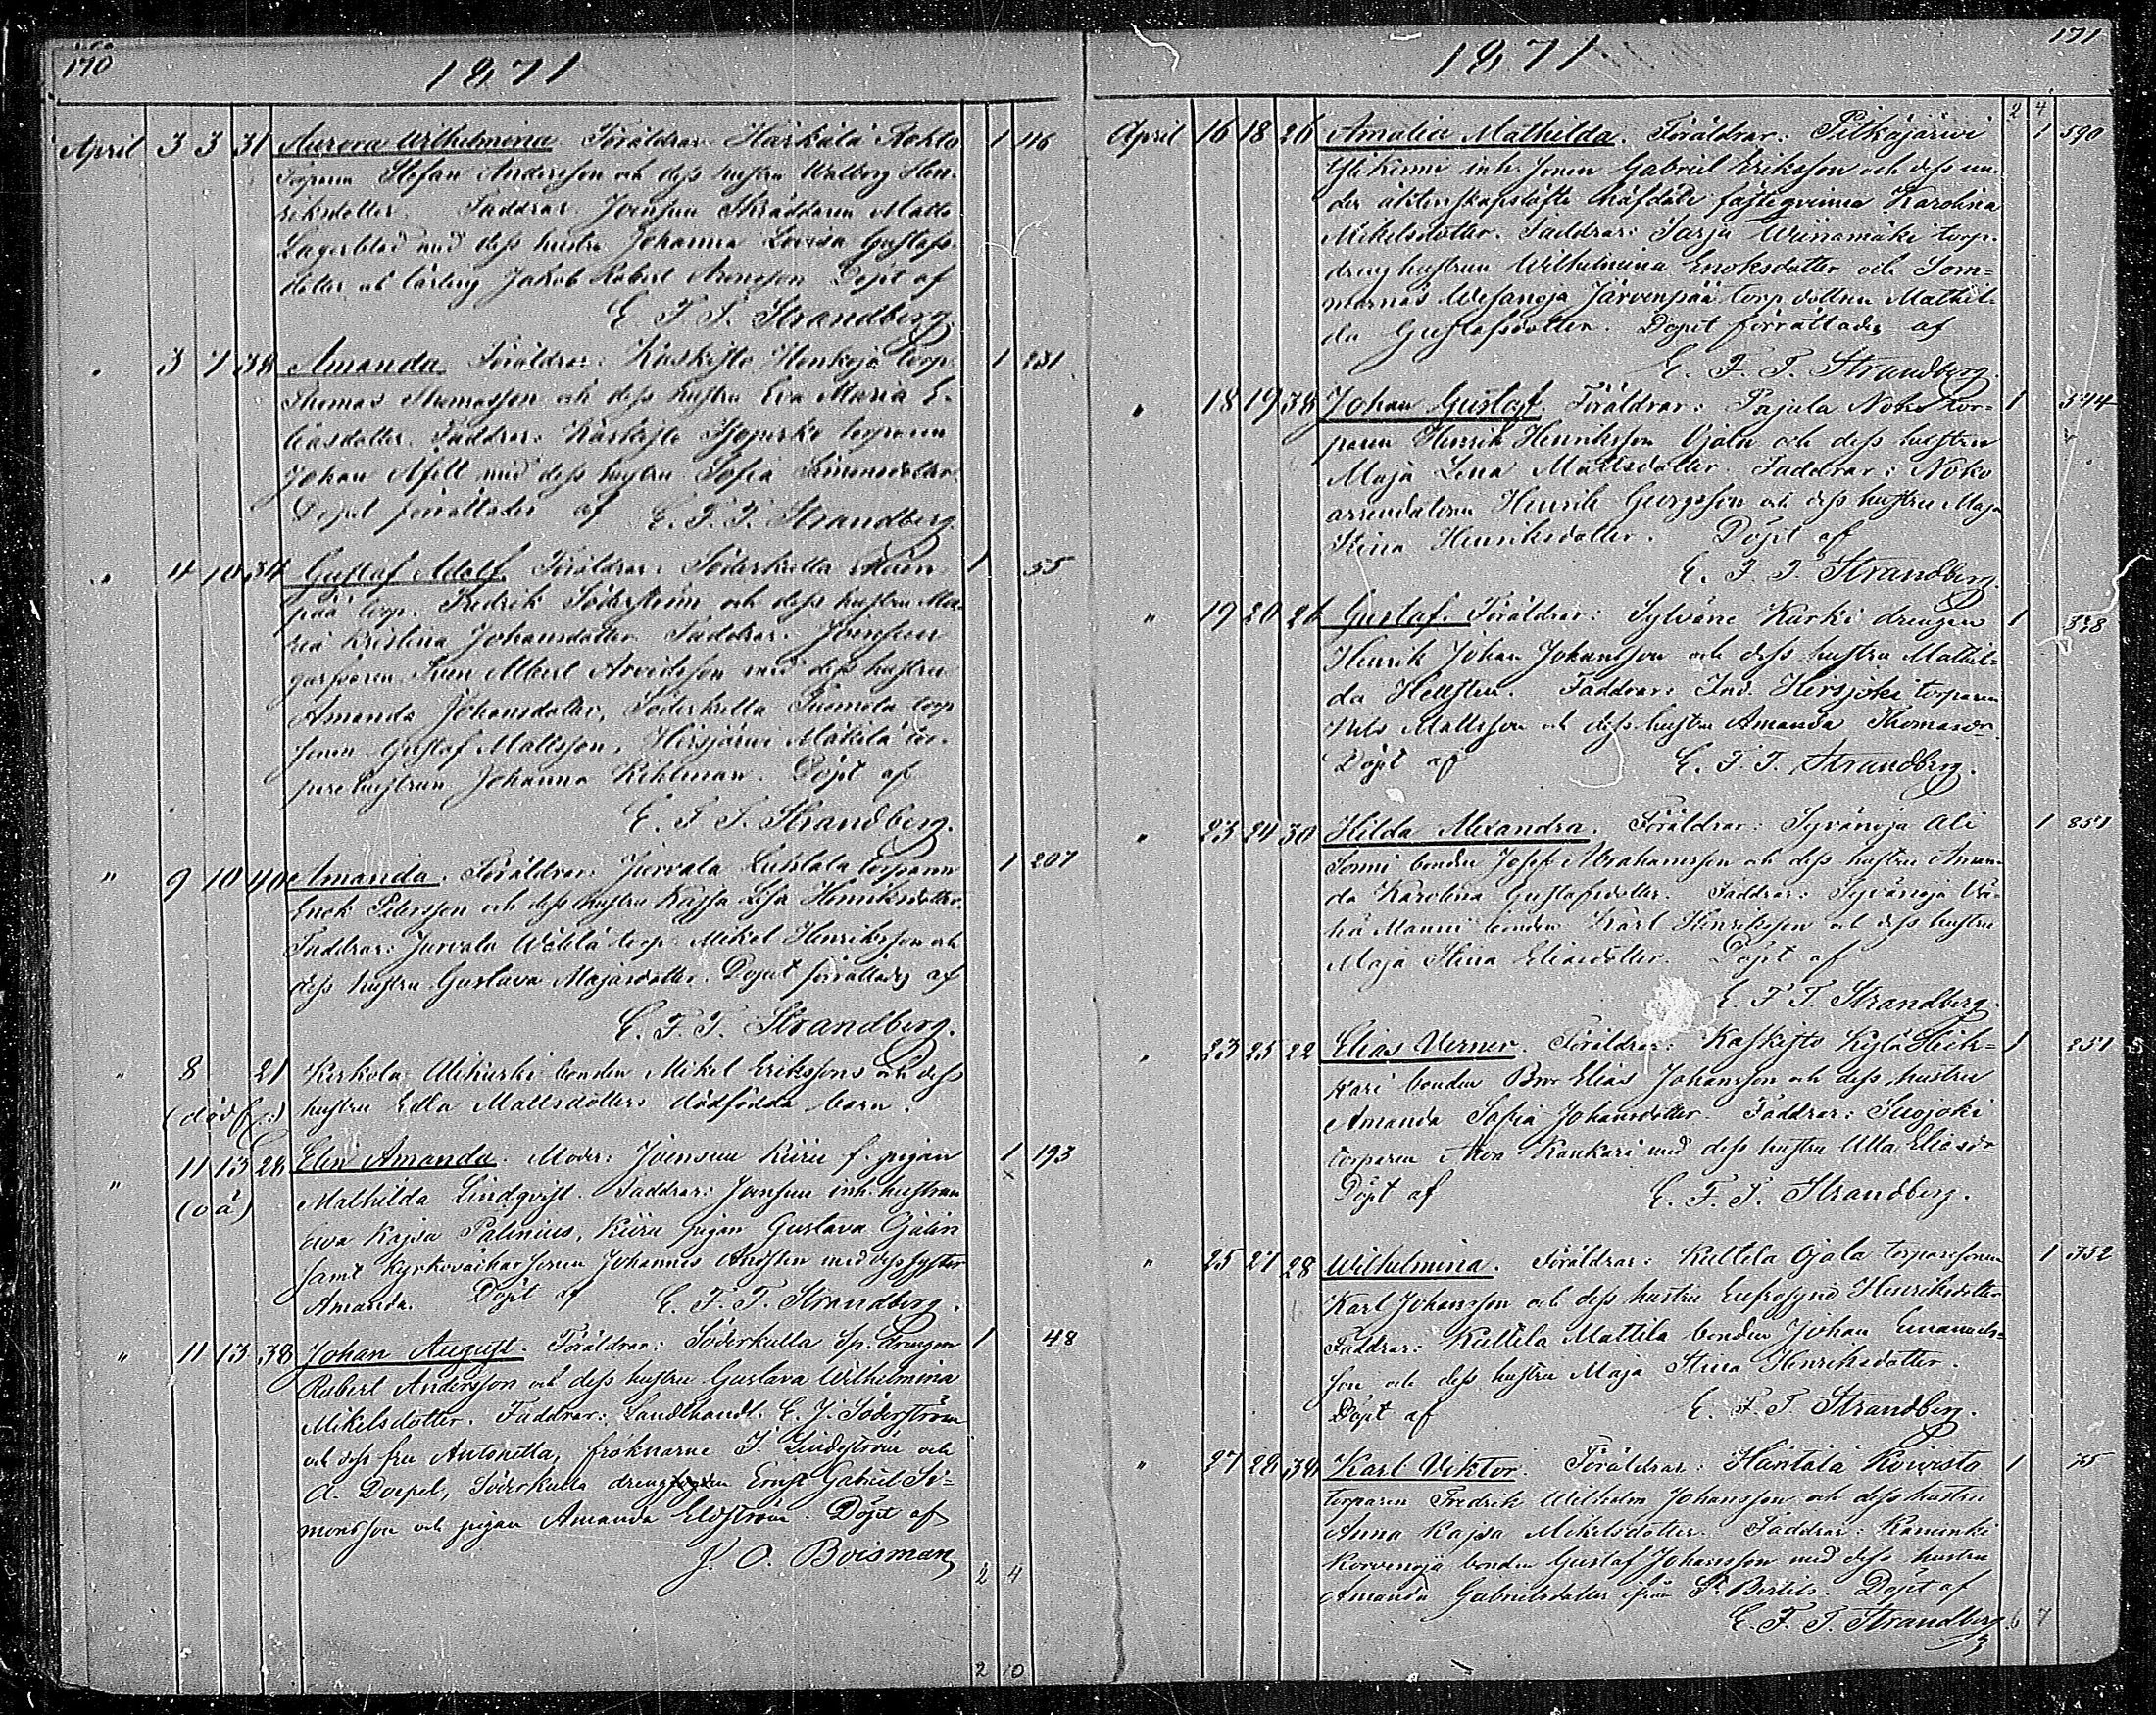 170
1871
April 3 3 31 Aurora Wilhelmina. Föräldrar: Härkälä Rohto 1 116
torparen Stefan Andersson och dess hustru Walborg Hen-
riksdotter. Faddrar: Joensuu Skräddaren Matts
Lagerblad med dess hustru Johanna Lovisa Gustafs-
dotter och lärling Jakob Robert Aronsson. Döpt af
E. F. T. Strandberg.
" 3 7 38 Amanda. Föräldrar: Kaskisto Henkoja torp.
Thomas Thomasson och dess hustru Eva Maria E- 1 231
liasdotter. Faddrar: Kaskisto torparen
Johan med dess hustru Sofia Simonsdotter.
Döpet förrättades af E. F. T. Strandberg.
" 4 10 34 Gustaf Adolf. Föräldrar: Söderkulla 1 55
pää torp. Fredrik Söderström och dess hustru Ma-
ria Kristina Johansdotter. Faddrar: Joensuu
garfvaren Sven Albert Arvidsson med dess hustru
Amanda Johansdotter, Söderkulla Suomela torp
sonen Gustaf Mattsson, Hirsjärvi Mäkilä tor-
parehustrun Johanna Kihlman. Döpt af
E. F. T. Strandberg.
" 9 10 40 Amanda. Föräldrar: Jurvala torparen 1 207
Enok Petersson och dess hustru Kajsa Lisa Henriksdotter.
Faddrar: Jurvala Wälilä torp. Mikel Henriksson och
dess hustru Gustava Majasdotter. Döpet förrättades af
E. F. T. Strandberg.
" 8 21 Kerkola Alikurki bonden Mikel Erikssons och dess
(dödf.) hustru Edla Mattsdotters dödfödda barn.
" 11 13 28 Elin Amanda. Moder: Joensuu Kiiru f. pigan 1 193
(oä) Mathilda Lindqvist. Faddrar: Joensuu inh. hustrun x
Eva Kajsa Palenius, Kiiru pigan Gustava
samt Kyrkoväktar sonen Johannes med dess syster
Amanda. Döpt af E. F. T. Strandberg.
" 11 13 38 Johan August. Föräldrar: Söderkulla Sp. drengen 1 48
Robert Andersson och dess hustru Gustava Wilhelmina
Mikelsdotter. Faddrar: Landthandl. C. J. Söderström
och dess fru Antonetta, fröknarne J. Lindeström och
A. Doepel, Söderkulla drengen Ernst Gabriel Si-
monsson och pigan Amanda Eldström. Döpt af
J. O. Boisman
2 4
2 10
171
1871
2 4
April 16 18 26 Amalia Mathilda. Föräldrar: Pitkäjärvi 1 590
Ylikenni inh. sonen Gabriel Eriksson och dess un-
der äktenskapslöfte häfdade fästeqvinna Karolina
Mikelsdotter. Faddrar: Sarja Wiinamäki torp.
drenghustrun Wilhelmina Enoksdotter och Som-
marnäs Wesanoja Järvenpää torp dottren Mathil-
da Gustafsdotter. Döpet förrättades af
E. F. T. Strandberg.
" 18 19 38 Johan Gustaf. Föräldrar: Pajula Noko tor- 1 374
paren Henrik Henriksson Ojala och dess hustru
Maja Lena Mattsdotter. Faddrar: Noko
arrendatorn Henrik Georgsson och dess hustru Maja
Stina Henriksdotter. Döpt af
E. F. T. Strandberg.
" 19 20 26 Gustaf. Föräldrar: Sylväne Kurki drengen 1 338
Henrik Johan Johansson och dess hustru Mathil-
da Hellsten. Faddrar: Ind. Hirsjoki torparen
Nils Mattsson och dess hustru Amanda Thomasdr.
Döpt af E. F. T. Strandberg.
" 23 24 30 Hilda Alexandra. Föräldrar: Syvänoja Ali 1 851
Sonni bonden Josef Abrahamsson och dess hustru Aman-
da Karolina Gustafsdotter. Faddrar: Syvänoja Vä-
hä Manni bonden Karl Henriksson och dess hustru
Maja Stina Eliasdotter. Döpt af
E. F. T. Strandberg.
" 23 25 22 Elias Verner. Föräldrar: Kaskisto Kylä Heik- 1 251
kari bonden Elias Johansson och dess hustru
Amanda Sofia Johansdotter. Faddrar: Suojoki
torparen Kankari med dess hustru Ulla Eliasdr
Döpt af E. F. T. Strandberg.
" 25 27 28 Wilhelmina. Föräldrar: Kultela Ojala torparesonen 1 352
Karl Johansson och dess hustru Eufrosyne Henriksdotter
Faddrar: Kultela Mattila bonden Johan Emanuels-
son och dess hustru Maja Stina Henriksdotter.
Döpt af E. F. T. Strandberg.
" 27 28 38 Karl Viktor. Föräldrar: Häntälä Koivisto 1 75
torparen Fredrik Wilhelm Johansson och dess hustru
Anna Kajsa Mikelsdotter. Faddrar: Raminki
Korvenoja bonden Gustaf Johansson med dess hustru
Amanda Gabrielsdotter ifrån St Bertils. Döpt af
E. F. T. Strandberg. 6 7